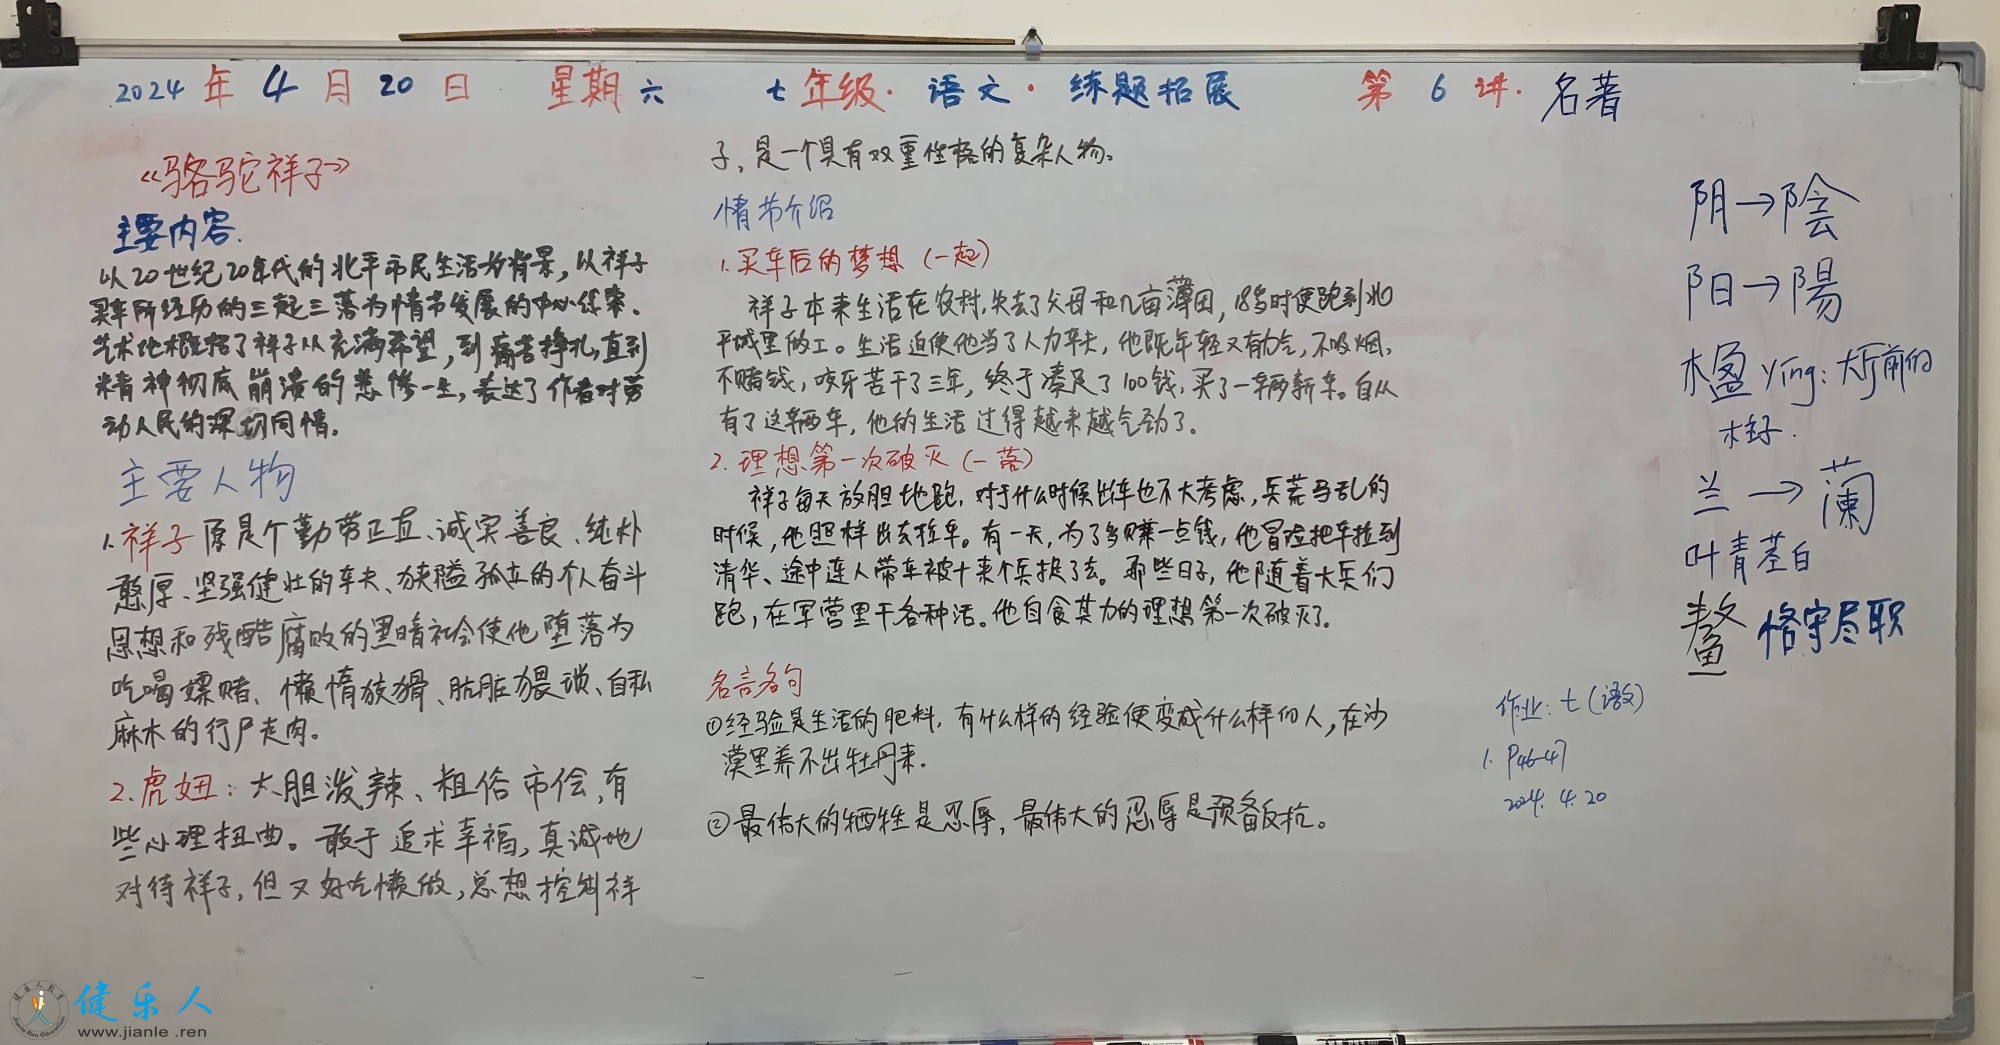 2024年4月20日 星期六 七年级·语文·练题拓展 第6讲. 名著
《骆驼祥子》
主要内容.
以20世纪20年代的北平市民生活为背景,以祥子
买车所经历的三起三落为情节发展的中心线索。
艺术地概括了祥子从充满希望,到痛苦挣扎,直到
精神彻底崩溃的悲惨一生,表达了作者对劳
动人民的深切同情。
主要人物
1.祥子 原是个勤劳正直、诚实善良、纯朴
憨厚、坚强健壮的车夫、狭隘孤立的个人奋斗
思想和残酷腐败的黑暗社会使他堕落为
吃喝嫖赌、懒惰狡猾、肮脏猥琐、自私
麻木的行尸走肉。
2.虎妞:大胆泼辣、粗俗市侩,有
些心理扭曲。敢于追求幸福,真诚地
对待祥子,但又好吃懒做,总想控制祥
子,是一个具有双重性格的复杂人物。
情节介绍
1.买车后的梦想(一起)
祥子本来生活在农村,失去了父母和几亩薄田,18岁时便跑到北
平城里做工。生活迫使他当了人力车夫,他既年轻又有力气,不吸烟,
不赌钱,咬牙苦干了三年,终于凑足了100钱,买了一辆新车。自从
有了这辆车,他的生活过得越来越气劲了。
2.理想第一次破灭(一落)
祥子每天放胆地跑,对于什么时候出车也不大考虑,兵荒马乱的
时候,他照样出去拉车。有一天,为了多赚一点钱,他冒险把车拉到
清华、途中连人带车被十来个兵捉了去。那些日子,他随着大兵们
跑,在军营里干各种活。他自食其力的理想第一次破灭了。
名言名句
①经验是生活的肥料,有什么样的经验便变成什么样的人,在沙
漠里养不出牡丹来.
②最伟大的牺牲是忍辱,最伟大的忍辱是预备反抗。
阴→陰
阳→陽
楹 ying:大厅前的
柱子.
兰→蘭
叶青茎白
鳌 恪守尽职
作业:七(语文)
1. P46-47
2024.4.20
健乐人
www.jianle.ren